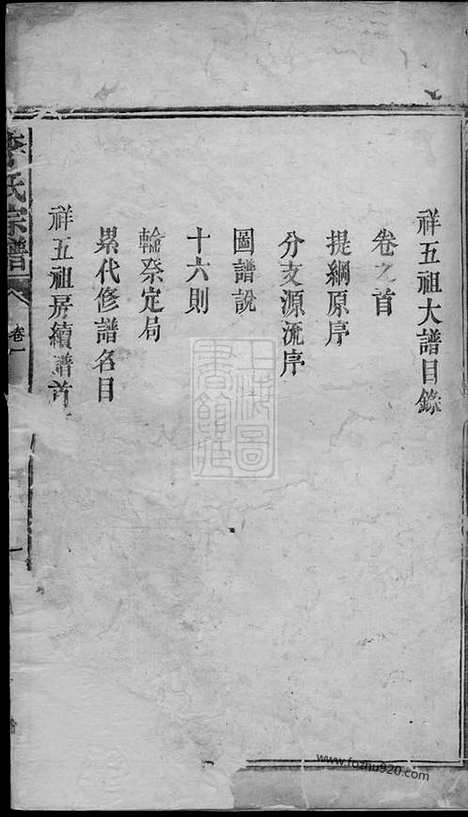 祥五祖大譜目錄
卷之首
提綱原序
分支源流序
圖譜說
十六則
輪祭定局
累代修譜名目
祥五祖房續譜首
李氏宗譜
卷一
上海圖書館藏
www.fozhu920.com